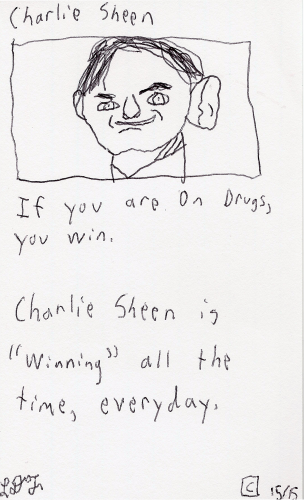 Charlie Sheen
If you are On Drugs,
you win.
Charlie Sheen is
"Winning" all the
time, everyday.
C 15/15